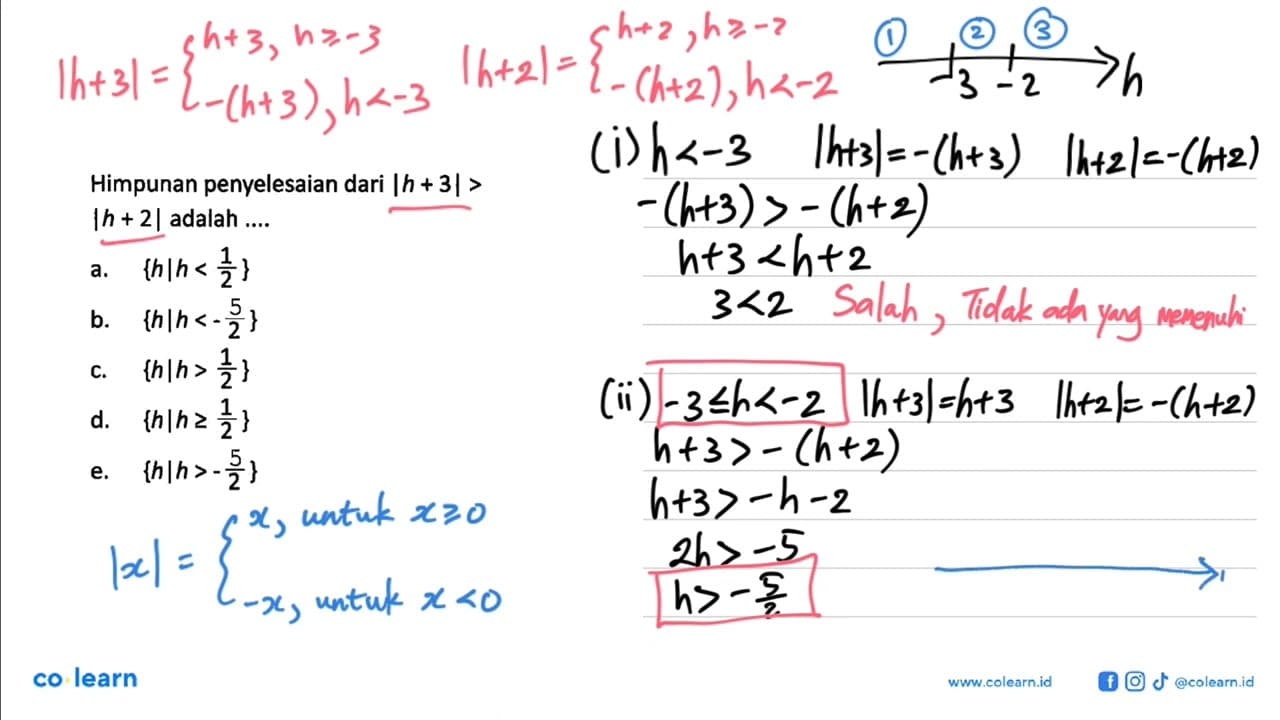 |h+3| = { h+3, h ≥ -3
-(h+3), h < -3
|h+2| = { h+2, h ≥ -2
-(h+2), h < -2
① ② ③
-3 -2 h
Himpunan penyelesaian dari |h + 3| >
|h + 2| adalah ....
a. {h|h < 1/2}
b. {h|h < -5/2}
c. {h|h > 1/2}
d. {h|h ≥ 1/2}
e. {h|h > -5/2}
|x| = { x, untuk x ≥ 0
-x, untuk x < 0
(i) h < -3 |h+3| = -(h+3) |h+2| = -(h+2)
-(h+3) > -(h+2)
h+3 < h+2
3 < 2 Salah, Tidak ada yang memenuhi
(ii) -3 ≤ h < -2 |h+3| = h+3 |h+2| = -(h+2)
h+3 > -(h+2)
h+3 > -h-2
2h > -5
h > -5/2
co learn
www.colearn.id @colearn.id